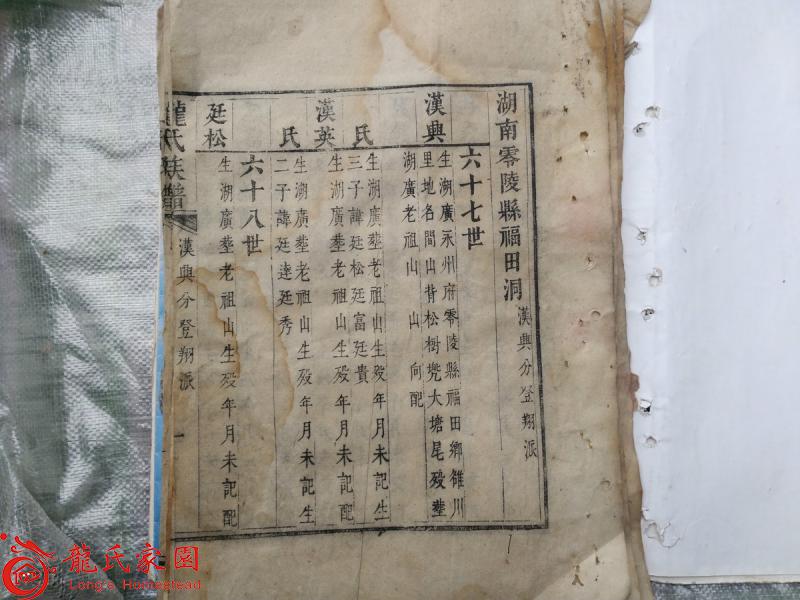 湖南零陵縣福田洞 漢興分登翔派
六十七世
漢興 生湖廣永州府零陵縣福田鄉雒川
里地名間山背松樹兠大塘尾殁塟
湖廣老祖山 山 向配
氏 生湖廣塟老祖山生殁年月未記生
三子諱廷松廷富廷貴
漢英 生湖廣塟老祖山生殁年月未記配
氏 生湖廣塟老祖山生殁年月未記生
二子諱廷達廷秀
六十八世
廷松 生湖廣塟老祖山生殁年月未記配
龍氏族譜 漢興分登翔派 一
龍氏家園
Long's Homestead